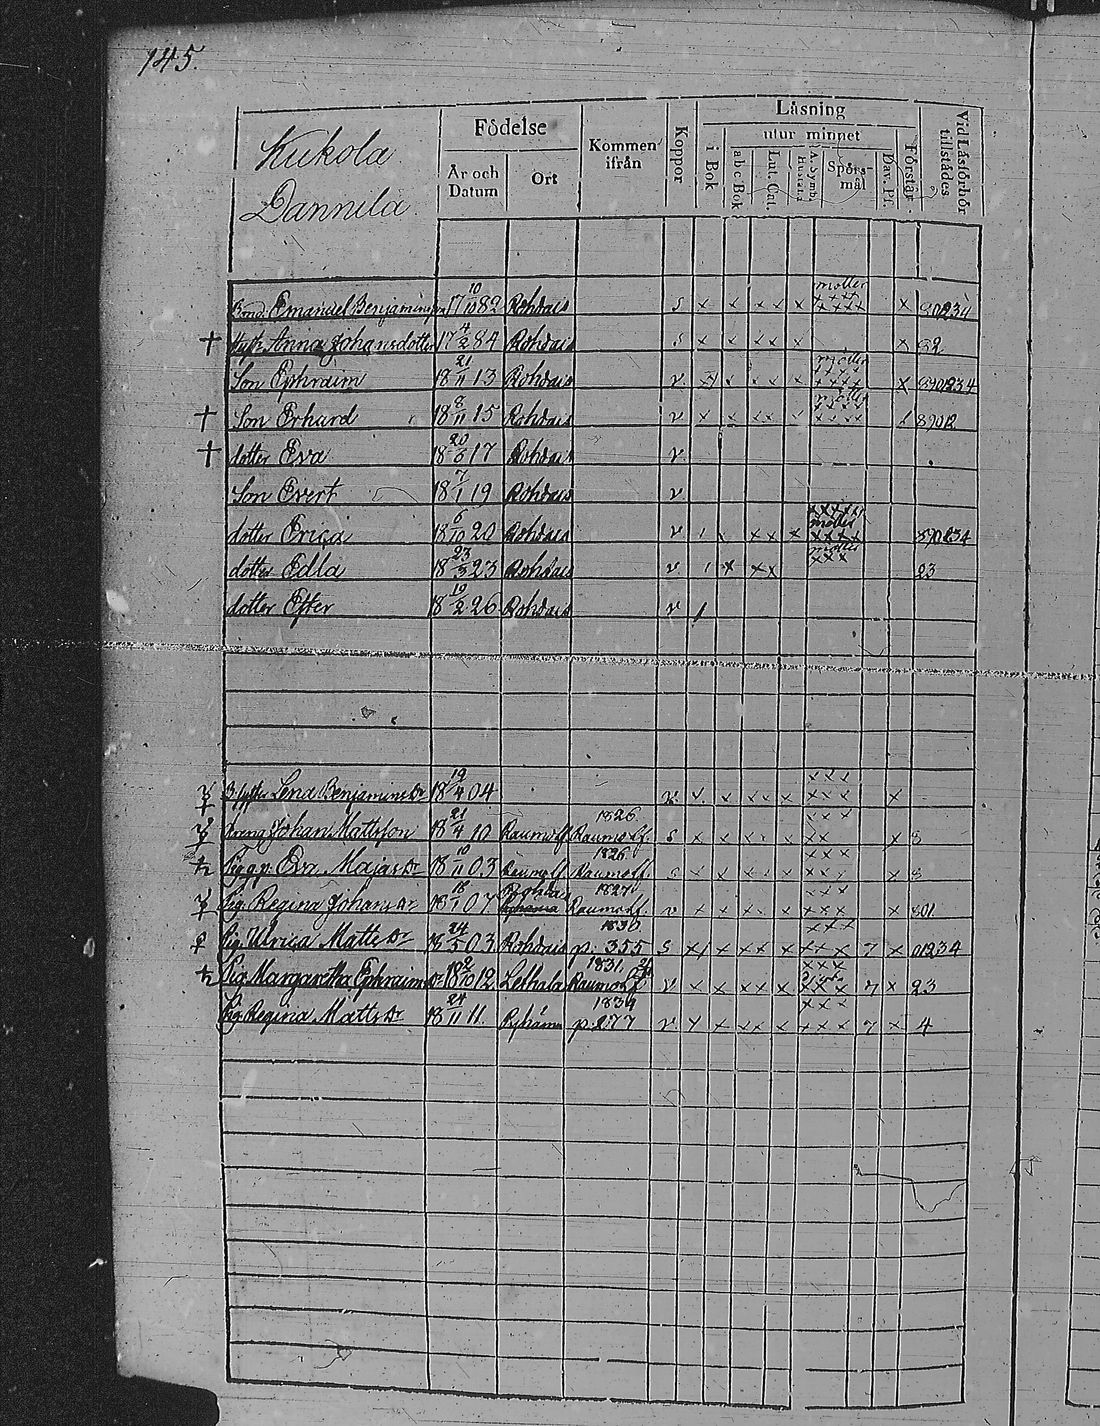 145.
Kukola
Dannila.
Födelse
År och Datum
Ort
Kommen ifrån
Koppor
Läsning
i Bok
utur minnet
abc Bok
Lut. Cat.
A. Symb.
Hustafla
Spörs-mål
Dav. Ps.
Förstår.
Vid Läsförhör tillstädes
Bond. Emanuel Benjaminsson 17 10/10 82 Rohdais s x x x x x möller x x x x x x x x 890234
† Hust. Anna Johansdotter 17 4/2 84 Rohdais s x x x x x x 82
Son Ephraim 18 21/11 13 Rohdais v möller x x x x x 890234
† Son Erhard 18 8/11 15 Rohdais v x x x x möller x x x x 89012
† dotter Eva 18 20/3 17 Rohdais v
Son Evert 18 7/1 19 Rohdais v
dotter Erica 18 6/10 20 Rohdais v x x x möller x x x x 890234
dotter Edla 18 23/3 23 Rohdais v x x x möller x x x 23
dotter Ester 18 19/2 26 Rohdais v
Lena Benjaminsdr 18 19/4 04 v x x x x x x x x x x x
Dreng Johan Mattsson 18 21/4 10 Raumolf 1826 Raumolf. s x x x x x x x x 8
Eva Majasdr 18 10/11 03 Raumolf 1826 Raumolf. s x x x x x x x x 8
Pig. Regina Johansdr 18 18/1 07 Rohdais 1827 Raumolf. v x x x x x x x x x x 801
♀ Pig. Ulrica Mattsdr 18 24/5 03 Rohdais 1830 p. 355 s x x x x x x x x 7 x 01234
Pig. Margaretha Ephraimsdr 18 2/10 12 Lethala 1831 Raumolf v x x x x x x x x 7 x 23
Pig. Regina Mattsdr 18 24/11 11. 1834 p. 277 v x x x x x x x x 7 x 4